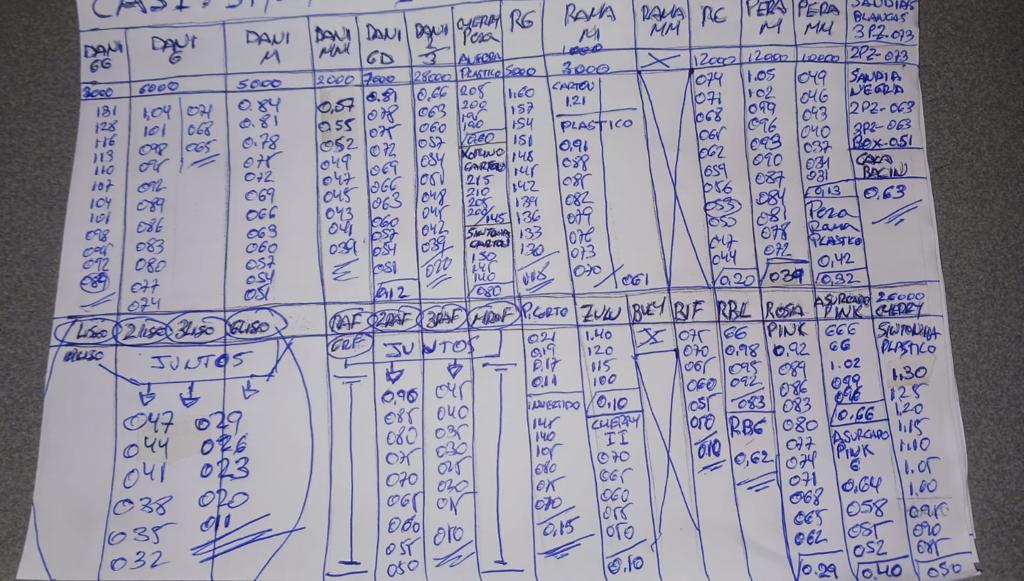 DANI GG
DANI G
DANI M
DANI MM
DANI GD
DANI 3
CHERRY PERA
RG
RAMA M
RAMA MM
RG
PERA M
PERA MM
SANDIAS BLANCAS 3PZ-073
3000
6000
5000
2000
7000
28000
AURORA PLASTICO
5000
1000
3000
X
12000
12000
10000
2PZ-073
131
128
116
113
110
107
104
101
098
092
089
1,04
101
098
095
092
089
086
083
080
077
074
071
068
065
0.84
0.81
0.78
075
072
069
066
063
060
057
054
051
0,57
0.55
052
049
047
045
043
041
039
0.81
078
075
072
069
066
063
060
057
054
051
0,12
0,66
063
060
057
054
051
048
045
042
039
010
205
202
CARTON
215
210
205
200
145
SINTONIA CARTON
150
145
140
080
1.60
157
154
151
148
145
142
139
136
133
130
CARTON
121
PLASTICO
0,91
088
085
082
079
076
073
070
061
074
071
068
065
062
059
056
053
050
047
044
0,20
1.05
102
099
096
093
090
087
084
081
078
072
039
049
046
043
040
037
034
031
0,13
Pera
Rama
PLASTCO
0,42
0,32
SANDIA NEGRA
2PZ-063
3PZ-063
BOX-051
CAXA
BACIN
0,63
1LISO
2LISO
3LISO
6LISO
JUNTOS
047
044
041
038
035
032
029
026
023
020
011
1RAF
GRF
2RAF
3RAF
JUNTOS
0,90
085
080
075
070
065
060
055
050
045
040
035
030
025
020
015
010
P.CORTO
0.21
0.19
0.17
0.11
INJERTADO
145
140
105
080
075
070
0,15
ZULU
1.40
120
115
100
0,10
CHERRY II
070
065
060
055
050
0.10
X
BIF
075
070
065
060
055
050
010
RBL
66
0.98
095
092
083
RBG
0,62
ROSA
PINK
0.92
089
086
083
080
077
074
071
068
065
062
0.29
ASURCADO PINK
666
66
1.02
099
096
0.66
ASURCADO
PINK
G
0,64
058
055
052
0.40
26000
CHERRY
SINTONIA
PLASTICO
1.30
125
1.20
1.15
1.10
1.05
1.00
0.95
090
085
050